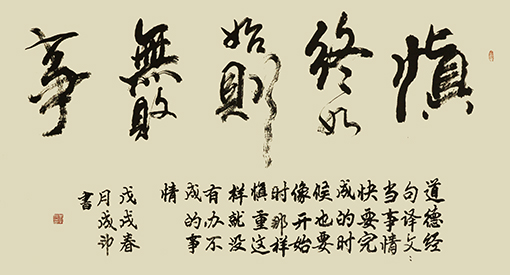 慎
終如
始則
無敗
事
道德经
句译文：
当事情
快要完
成的时
候也要
像开始
时那样
慎重这
样就没
有办不
成的事
情
戊戌春
月成
書